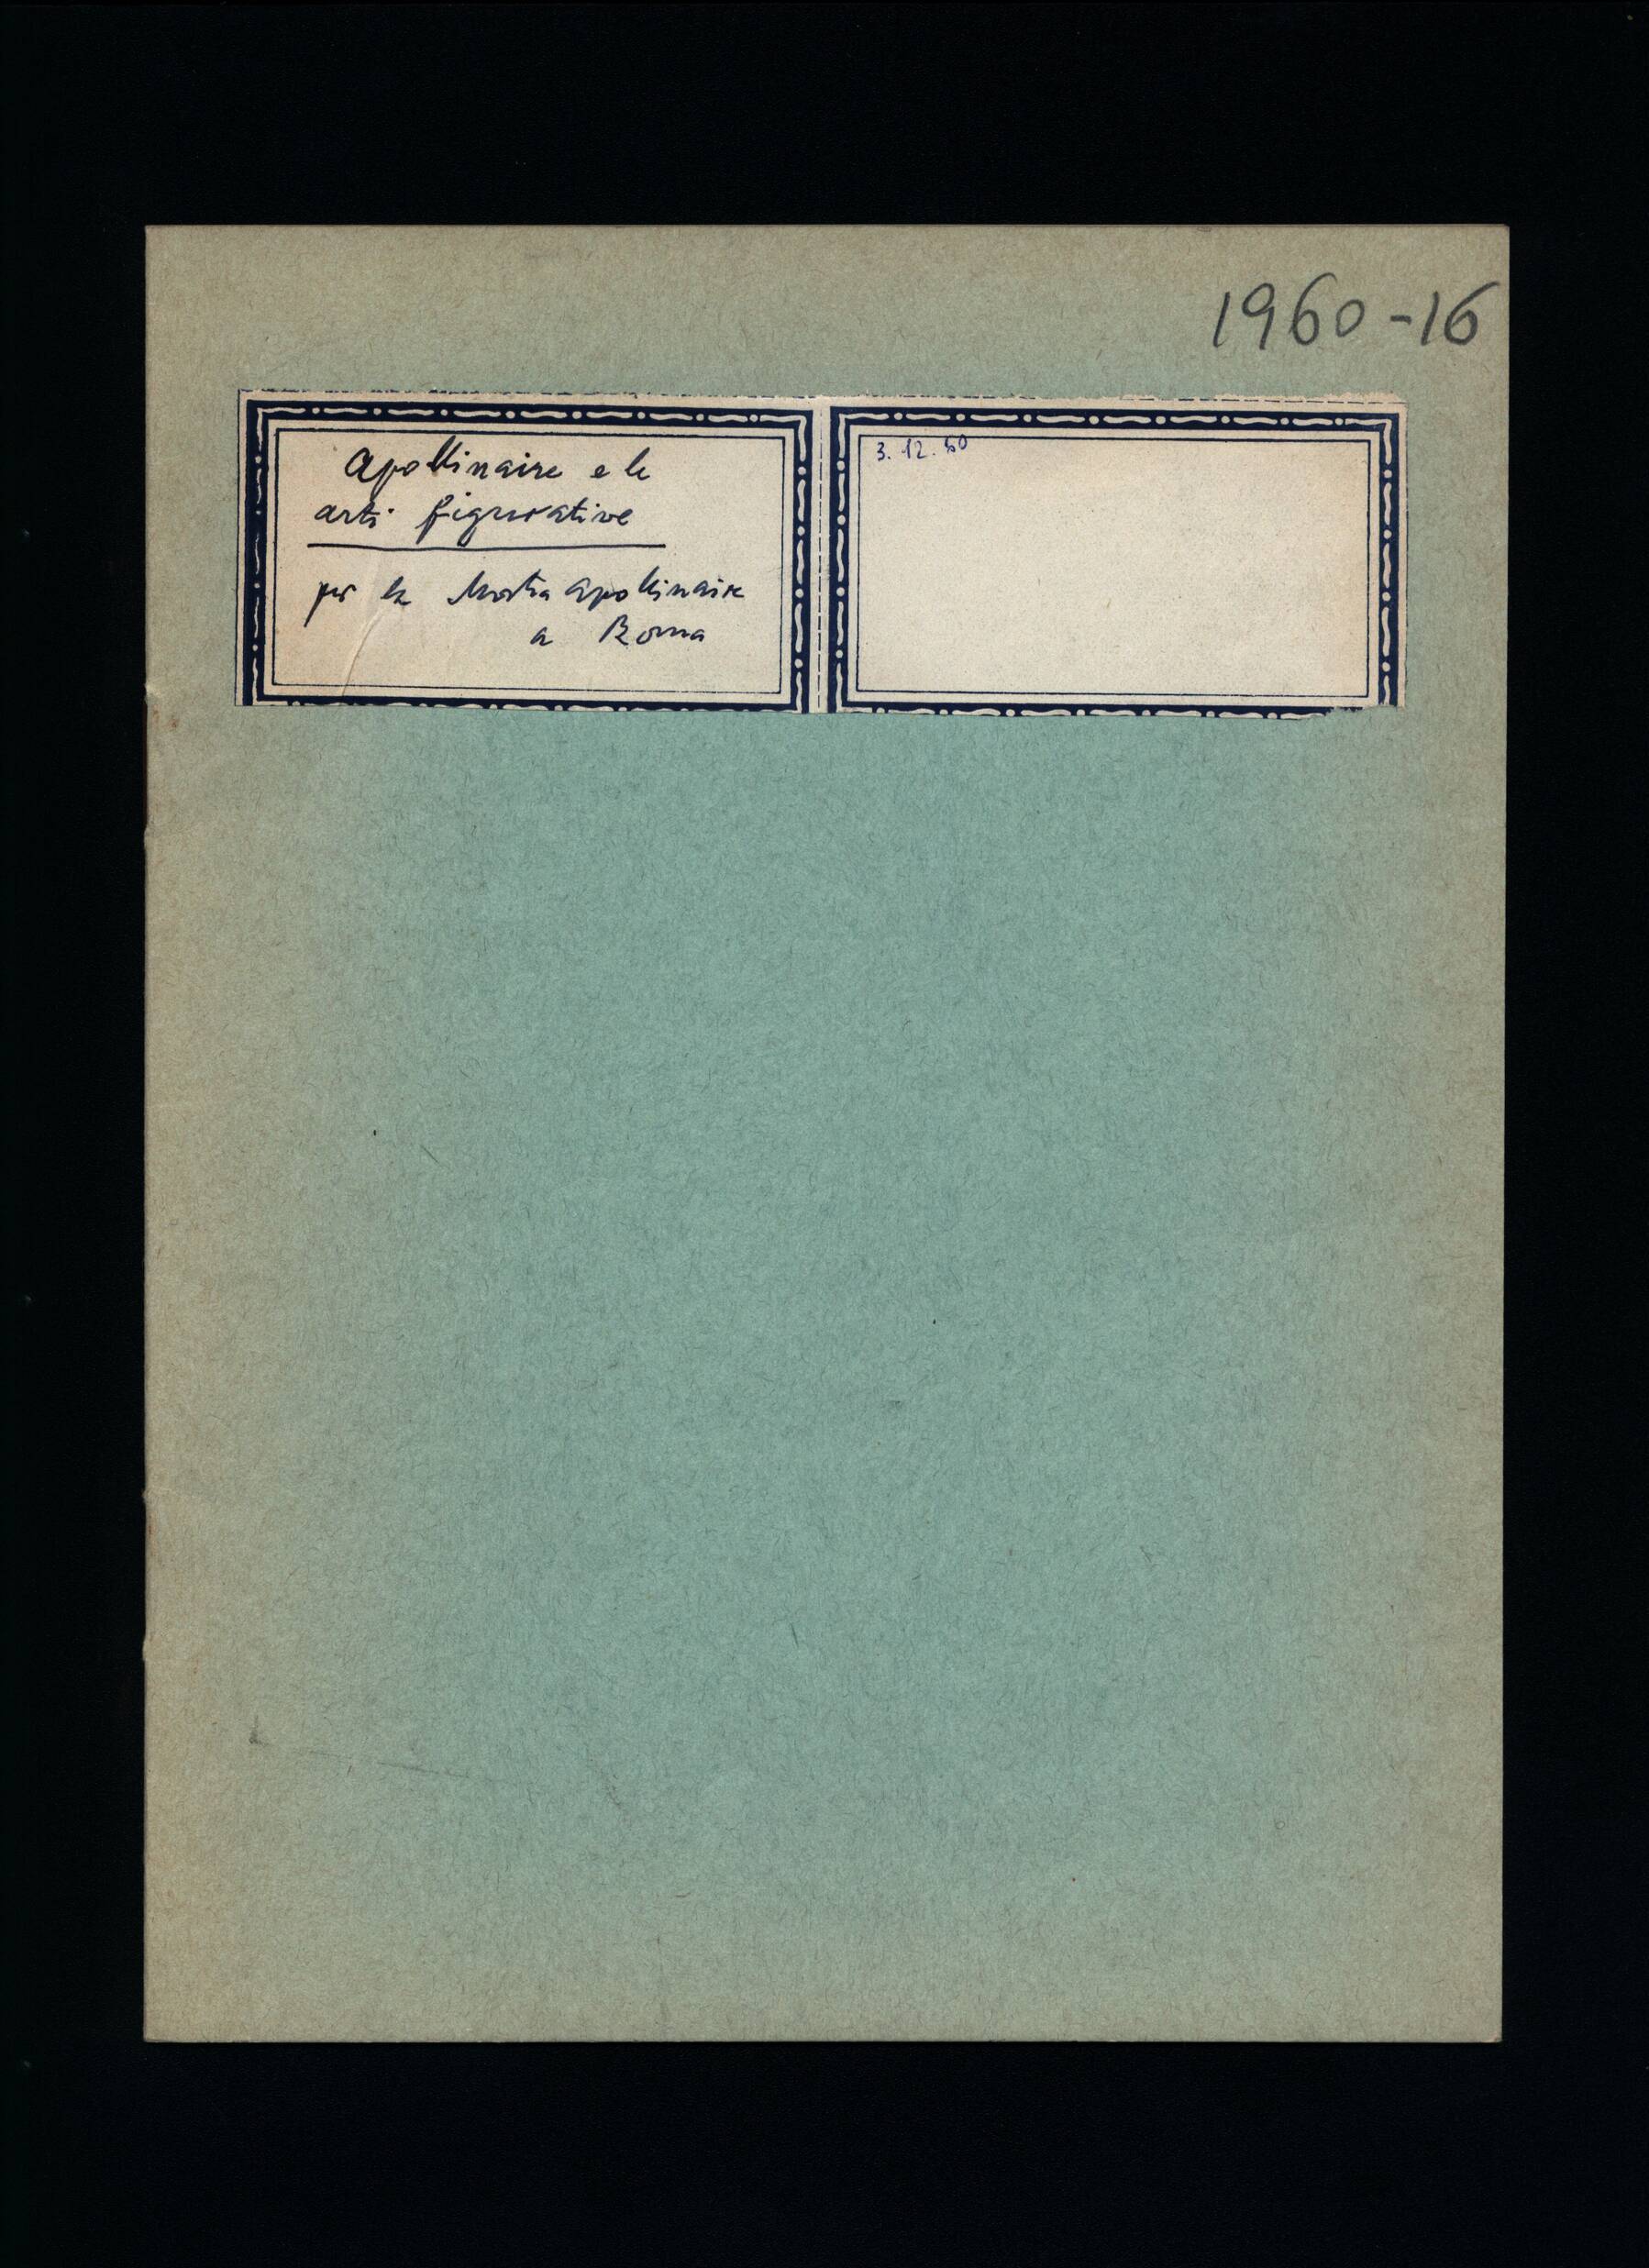 1960-16
Apollinaire e le
arti figurative
per la Mostra Apollinaire
a Roma
3.12.60